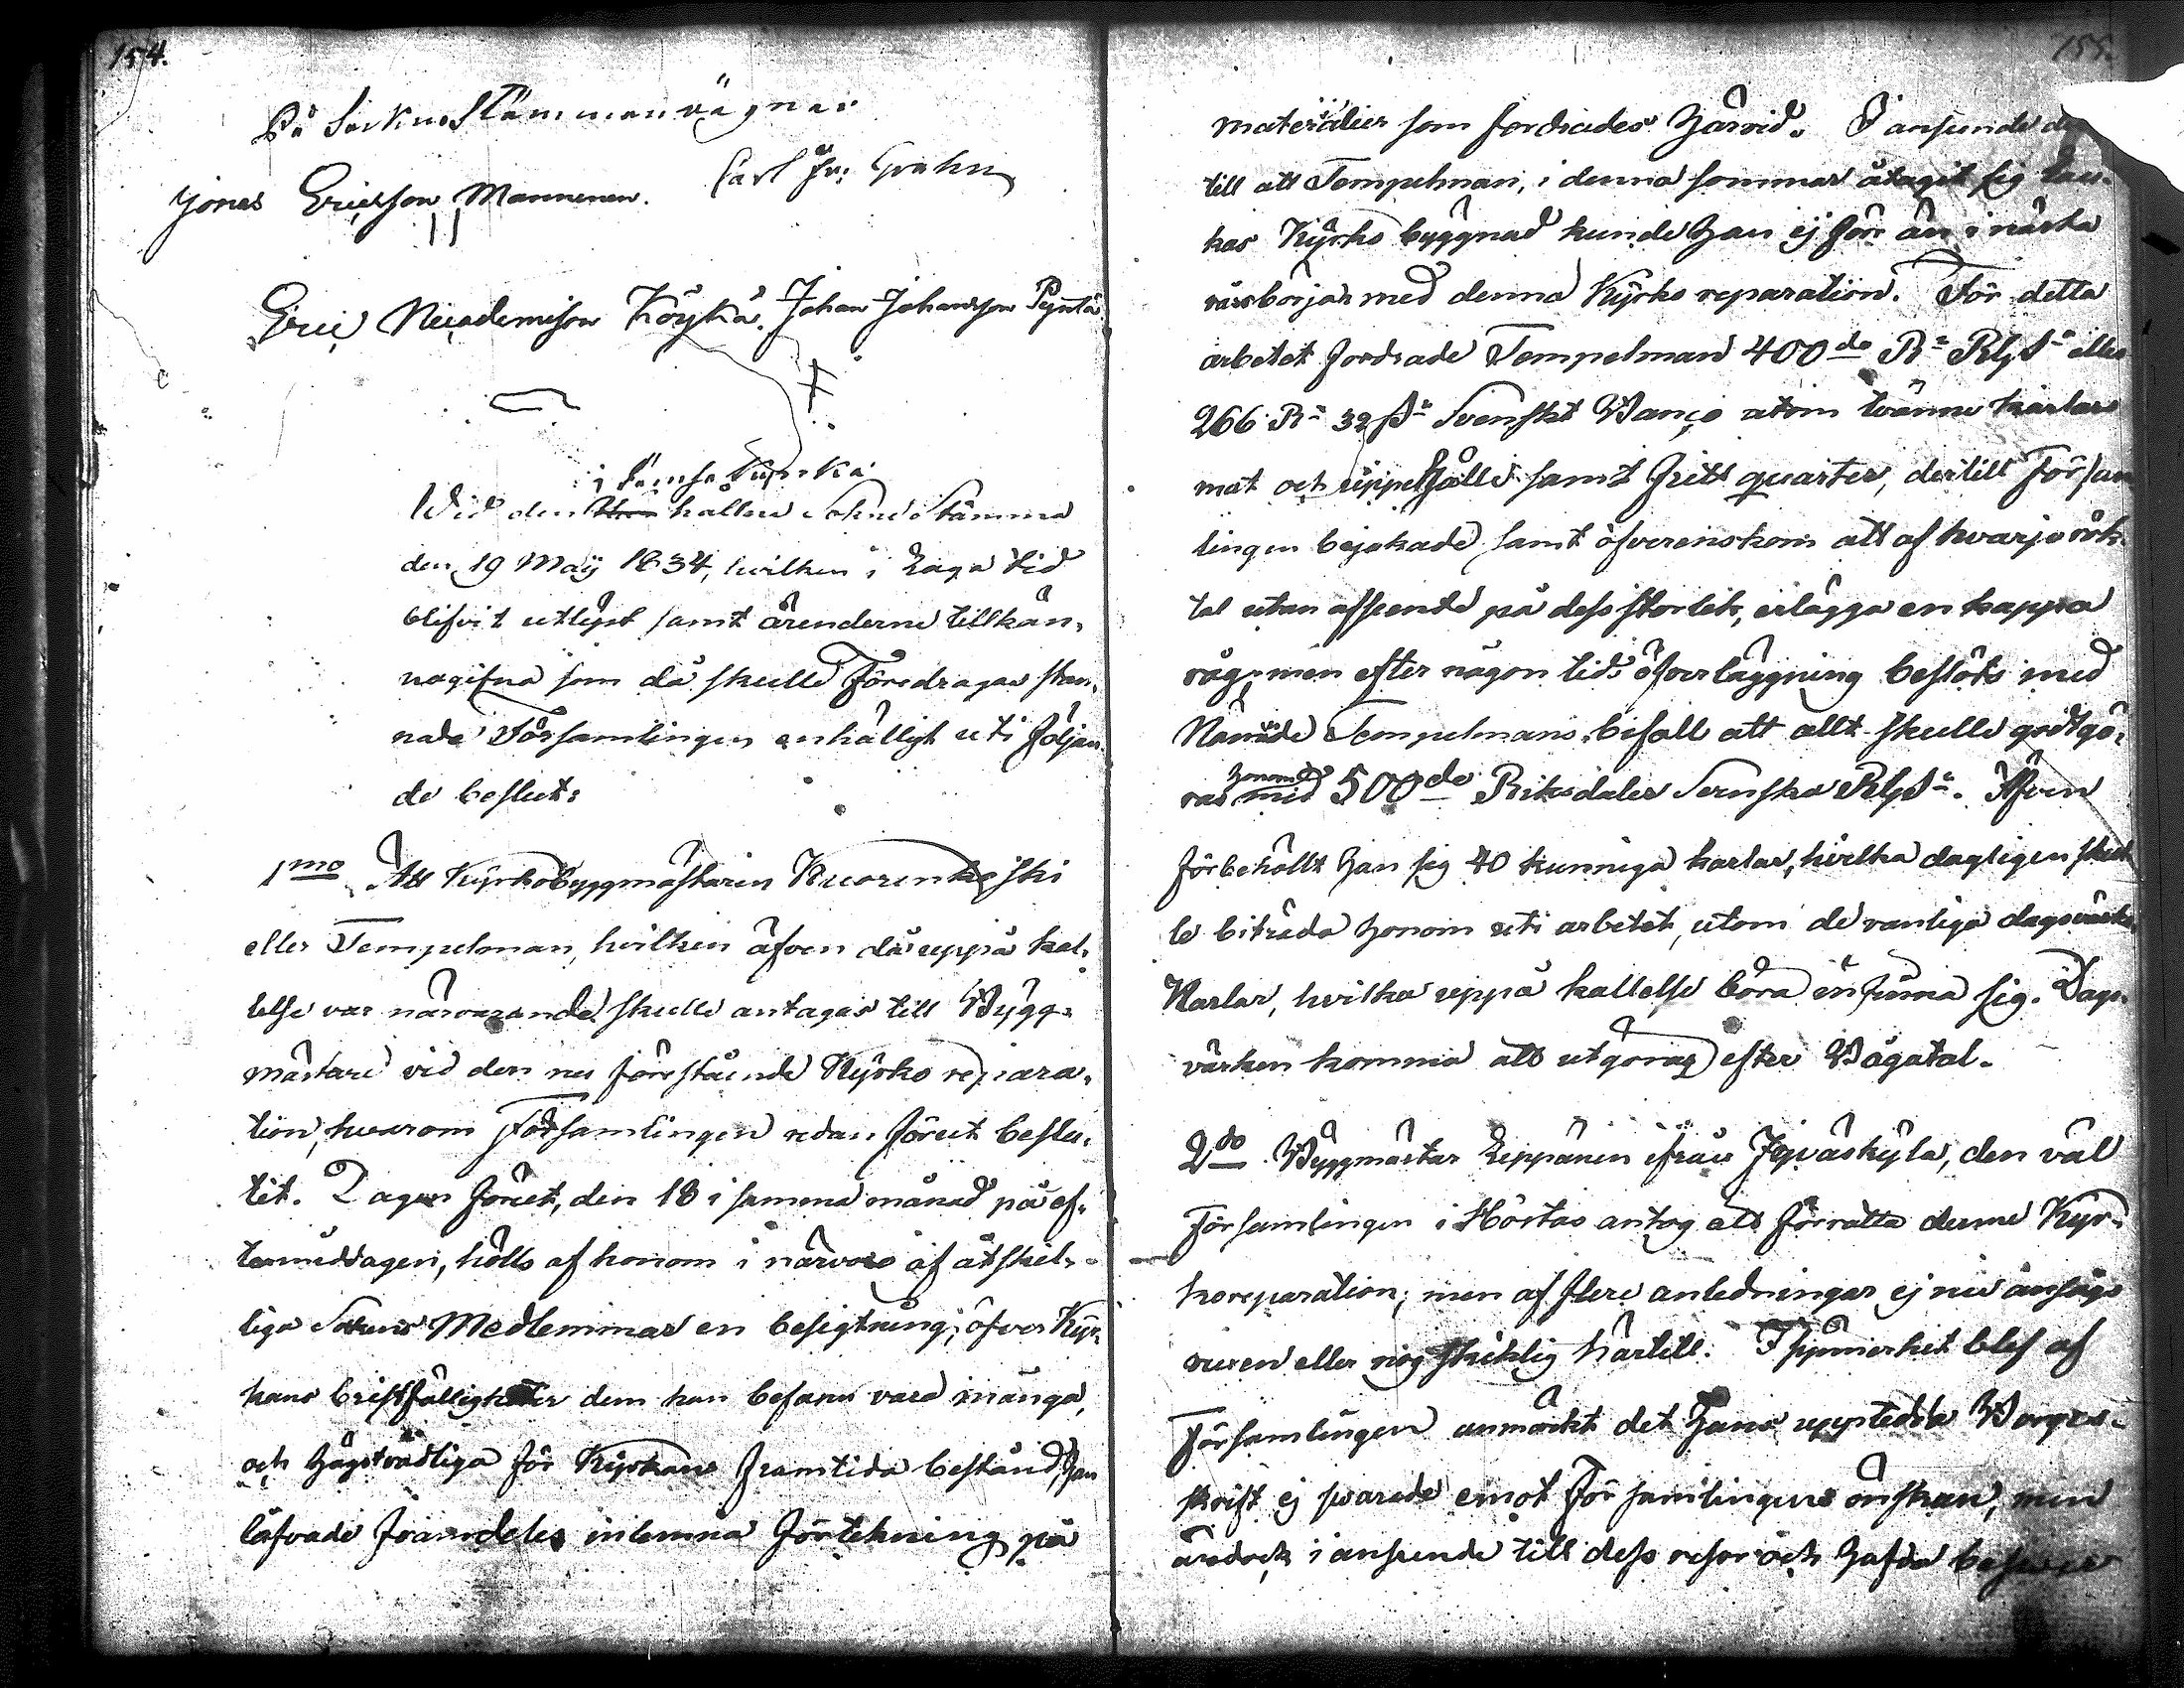 154.
På Sockne Stämmans vägnar
Carl Fr: Grahn
Jonas Ericsson Mannenen.
Eric Nicodemison Köykä. Johan Johansson Pynttä
i Jämsä Kyrka
Wid den hållen Sokne Stämma
den 19 Maÿ 1834, hvilken i Laga tid
blifvit utlyst samt ärenderne tillkän-
nagifna som då skulle Föredragas stan-
nade Församlingen enhälligt uti följan-
de beslut:
1mo Att Kyrkobyggmästaren Kuorenkoski
eller Tempelman, hvilken äfven då uppå kal-
lelse var närvarande skulle antagas till Bygg-
mästare vid den nu förestående Kyrko repara-
tion, hvarom Församlingen redan förut beslu-
tit. Dagen förut, den 18 i samma månad på ef-
termiddagen, hölls af honom i närvaro af åtskil-
liga Sokne Medlemmar en besigtning öfver Kyr-
kans bristfälligheter dem han befann vara många,
och högstvådliga för Kyrkans framtida bestånd, han
låfvade framdeles inlemna förtekning på
155.
materialier som fordrades härvid. I anseende
till att Tempelman, i denna sommar åtagit sig Lau-
kas Kyrko byggnad kunde han ej förr än i nästa
vår börja med denna Kyrko reparation. För detta
arbetet fordrade Tempelman 400de R:r Rgs:r eller
266 R:r 32 s:r Svenskt Banco utom tvänne karlars
mat och uppehälle samt fritt quarter, dertill Försam
lingen bejakade samt öfverenskom att af hvarje rök-
tal utan afseende på dess storlek, erlägga en kappa
råg, men efter någon tids öfverläggning beslöts med
Nämde Tempelmans bifall att allt skulle godtgö-
ras honom med 500de Riksdaler Svenska Rgs:r. Äfven
förbehöllt han sig 40 kunniga karlar, hvilka dagligen skul
le biträda honom uti arbetet, utom de vanliga dagsvärks
Karlar, hvilka uppå kallelse böra infinna sig. Dags-
värken komma att utgöras efter Bågatal.
2do Byggmästar Leppänen ifrån Jyväskyla, den väl
Församlingen i Höstas antog att förrätta denne Kyr-
koreparation; men af flere anledningar ej nu ansågs
vuxen eller nog skiklig härtill. I synnerhet blef af
Församlingen anmärkt det hans uppstedda Borges-
skrift ej svarade emot Församlingens önskan, men
ändock i anseende till dess resor och hafda